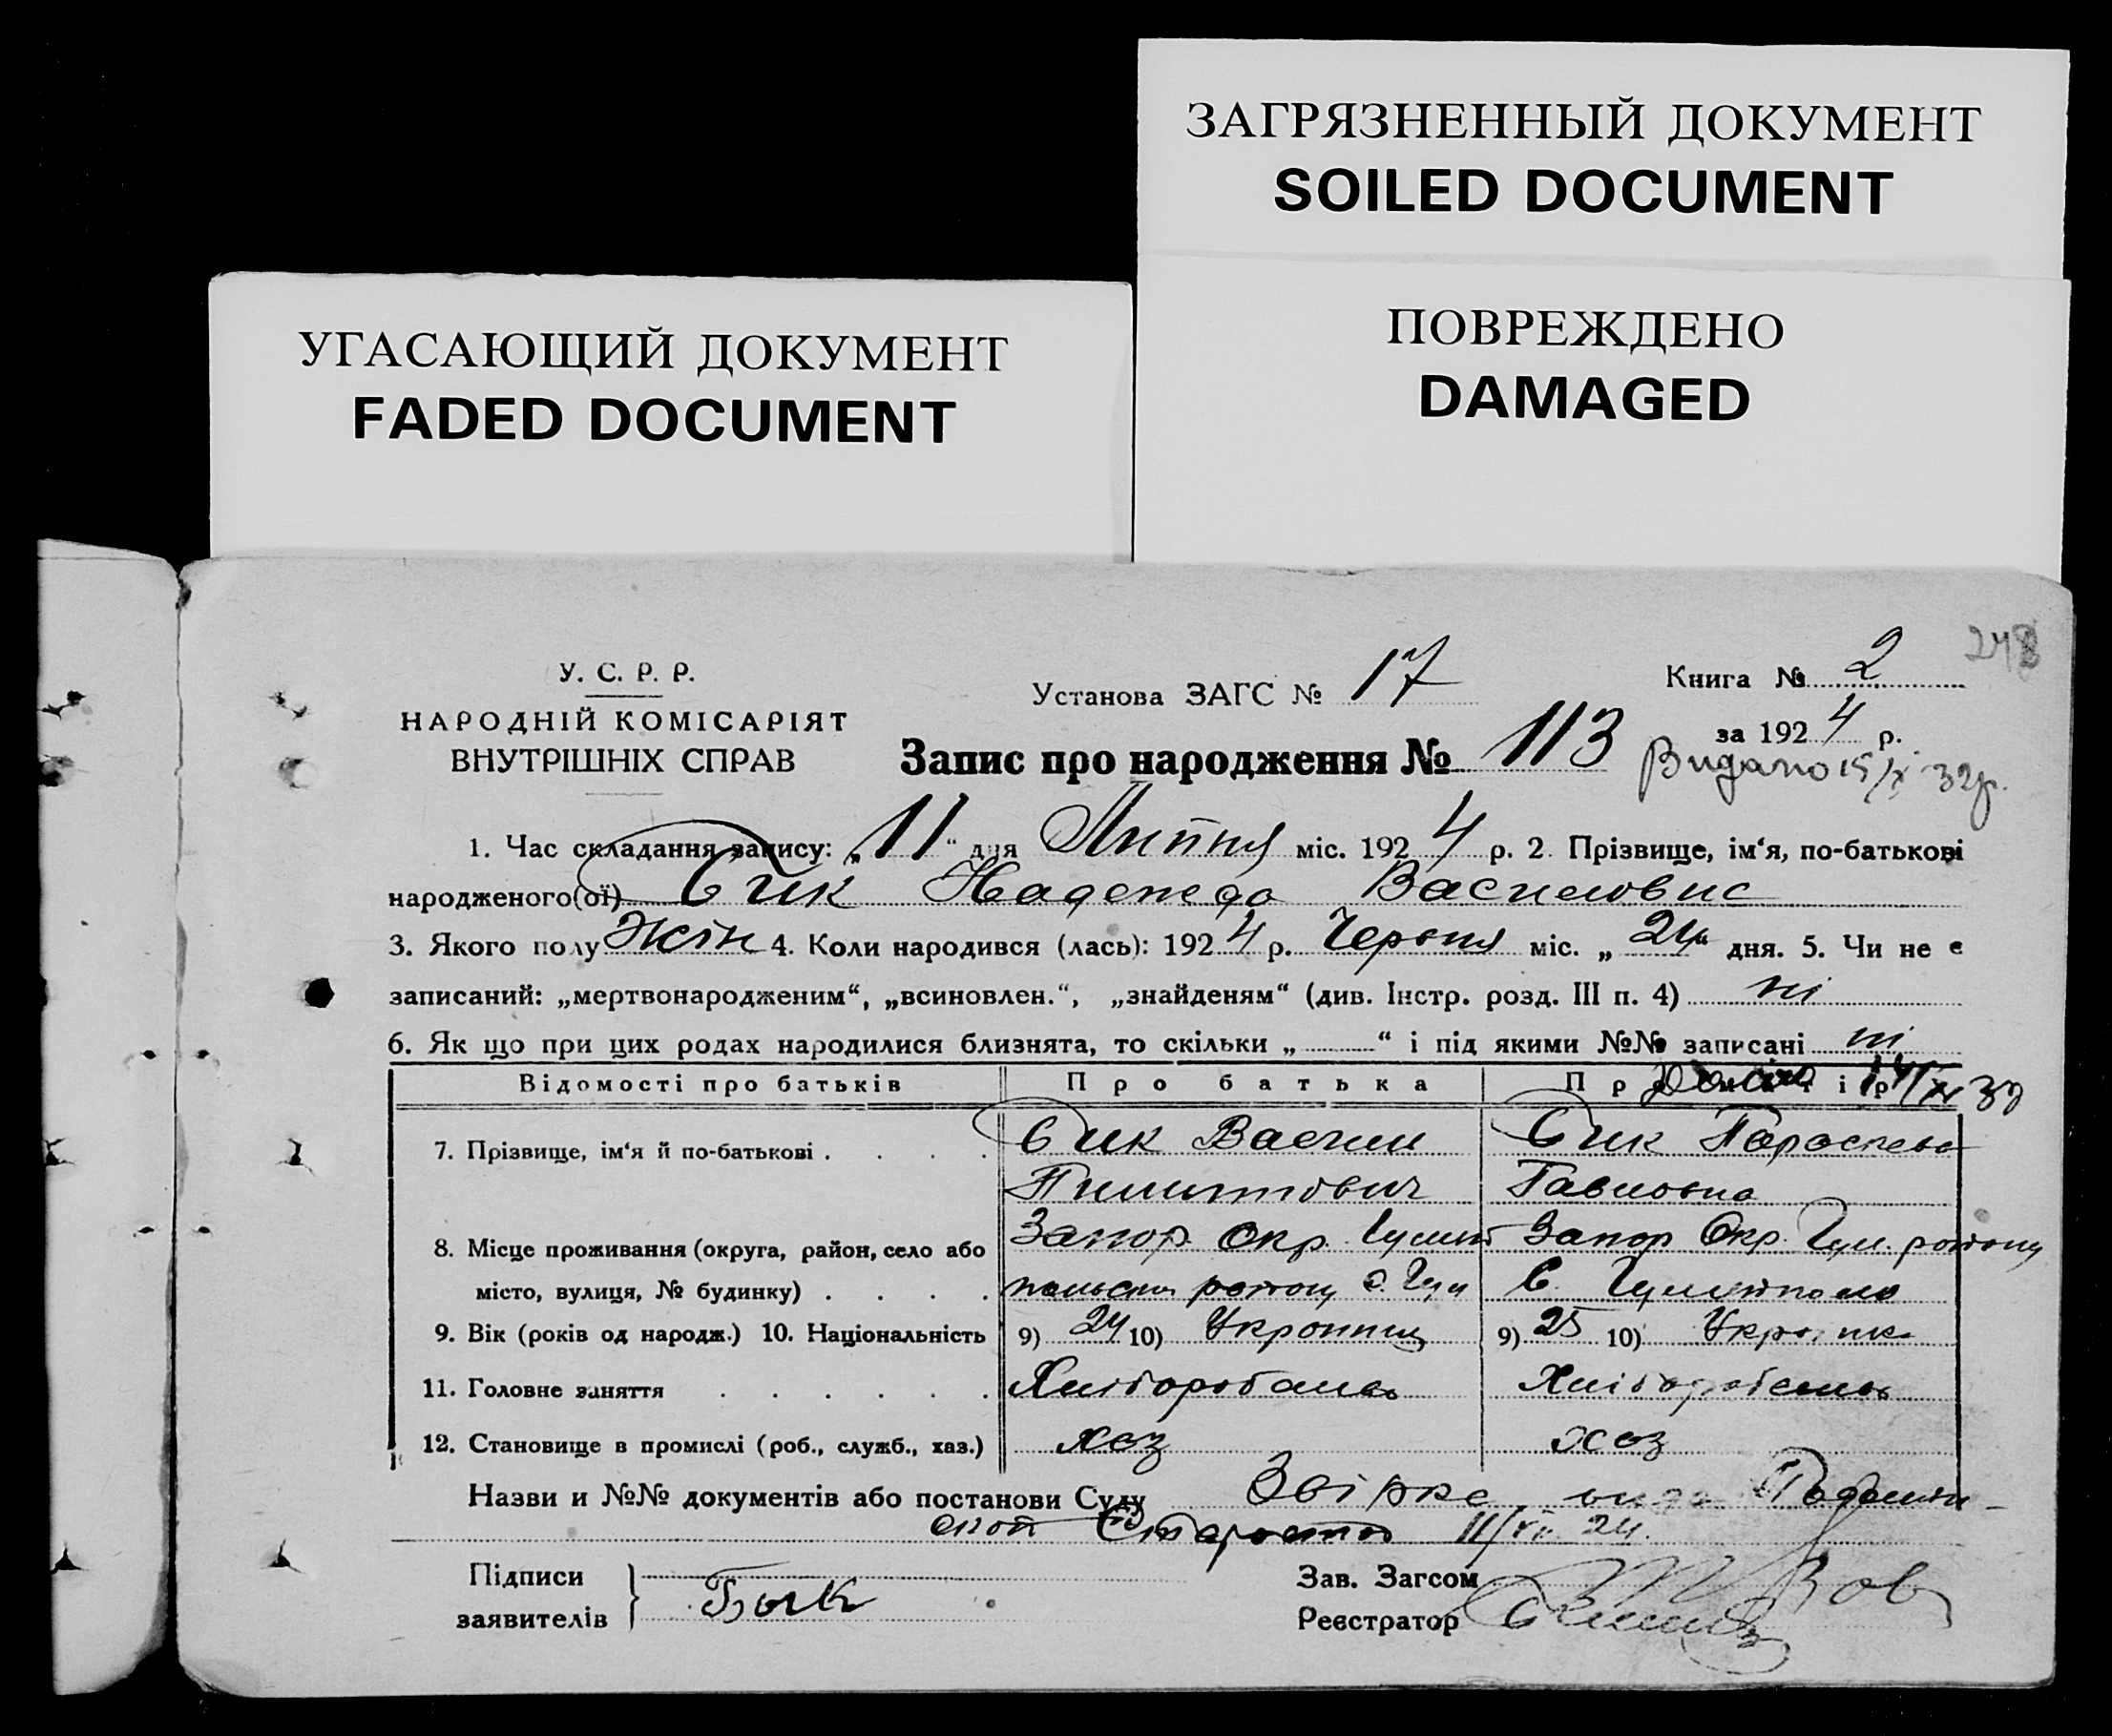 ЗАГРЯЗНЕННЫЙ ДОКУМЕНТ
SOILED DOCUMENT
УГАСАЮЩИЙ ДОКУМЕНТ
FADED DOCUMENT
ПОВРЕЖДЕНО
DAMAGED
248
У. С. Р. Р.
НАРОДНІЙ КОМІСАРІЯТ
ВНУТРІШНІХ СПРАВ
Установа ЗАГС № 17
Книга № 2
за 1924 р.
Запис про народження № 113
Видано 15/X 32р.
1. Час складання запису: „11“ дня Липня міс. 1924 р. 2. Прізвище, ім‘я, по-батькові
народженого(ої) Бик Надежда
3. Якого полу Жін 4. Коли народився (лась): 1924 р. Червня міс. „24“ дня. 5. Чи не є
записаний: „мертвонародженим“, „всиновлен.“, „знайденям“ (див. Інстр. розд. III п. 4) ні
6. Як що при цих родах народилися близнята, то скільки „ “ і під якими №№ записані ні
Відомості про батьків Про батька
7. Прізвище, ім‘я й по-батькові Бик Василий Бик Параскева
Павловна
8. Місце проживання (округа, район, село або Запор. Окр. Запор Окр. Гул. району
місто, вулиця, № будинку) району с. Гул С. Гуляйполе
9. Вік (років од народж.) 10. Національність 9) 24 10) Украинец 9) 25 10)
11. Головне заняття
12. Становище в промислі (роб., служб., хаз.) хоз хоз
Назви и №№ документів або постанови Суду
11/VII 24.
Підписи
заявителів
Бык
Зав. Загсом
Реєстратор